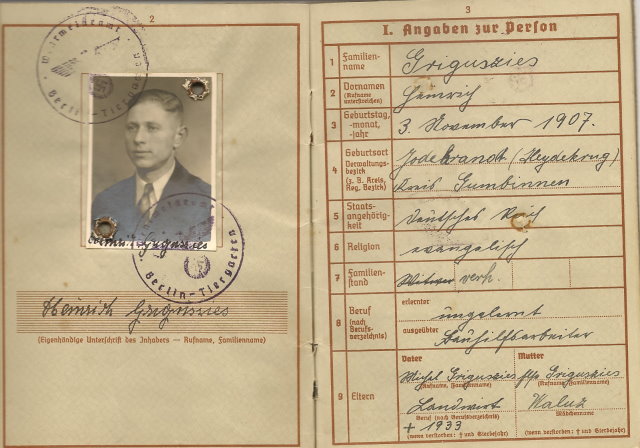 2
Wehrmeldeamt
Berlin-Tiergarten
Heinrich Griguszies
(Eigenhändige Unterschrift des Inhabers — Rufname, Familienname)
3
I. Angaben zur Person
1 Familien-
name
Griguszies
2 Vornamen
(Rufname
unterstreichen)
Heinrich
3 Geburtstag,
-monat,
-jahr
3. November 1907.
4 Geburtsort
Verwaltungs-
bezirk
(z. B. Kreis,
Reg. Bezirk)
Jodekrandt (Heydekrug)
Kreis Gumbinnen
5 Staats-
angehörig-
keit
Deutsches Reich
6 Religion
evangelisch
7 Familien-
stand
Witwer verh.
8 Beruf
(nach
Berufs-
verzeichnis)
erlernter
ungelernt
ausgeübter
Bauhilfsarbeiter
9 Eltern
Vater
Michel Griguszies
(Rufname, Familienname)
Landwirt
Beruf (nach Berufsverzeichnis)
† 1933
(wenn verstorben: † und Sterbejahr)
Mutter
Griguszies
(Rufname, Familienname)
Mädchenname
(wenn verstorben: † und Sterbejahr)